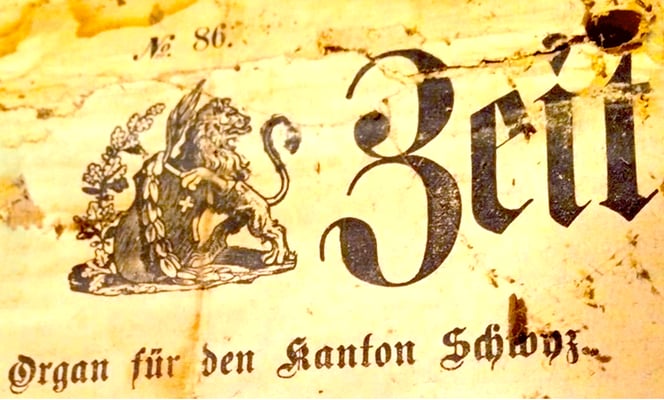 № 86.
Zeit
Organ für den Kanton Schwyz.